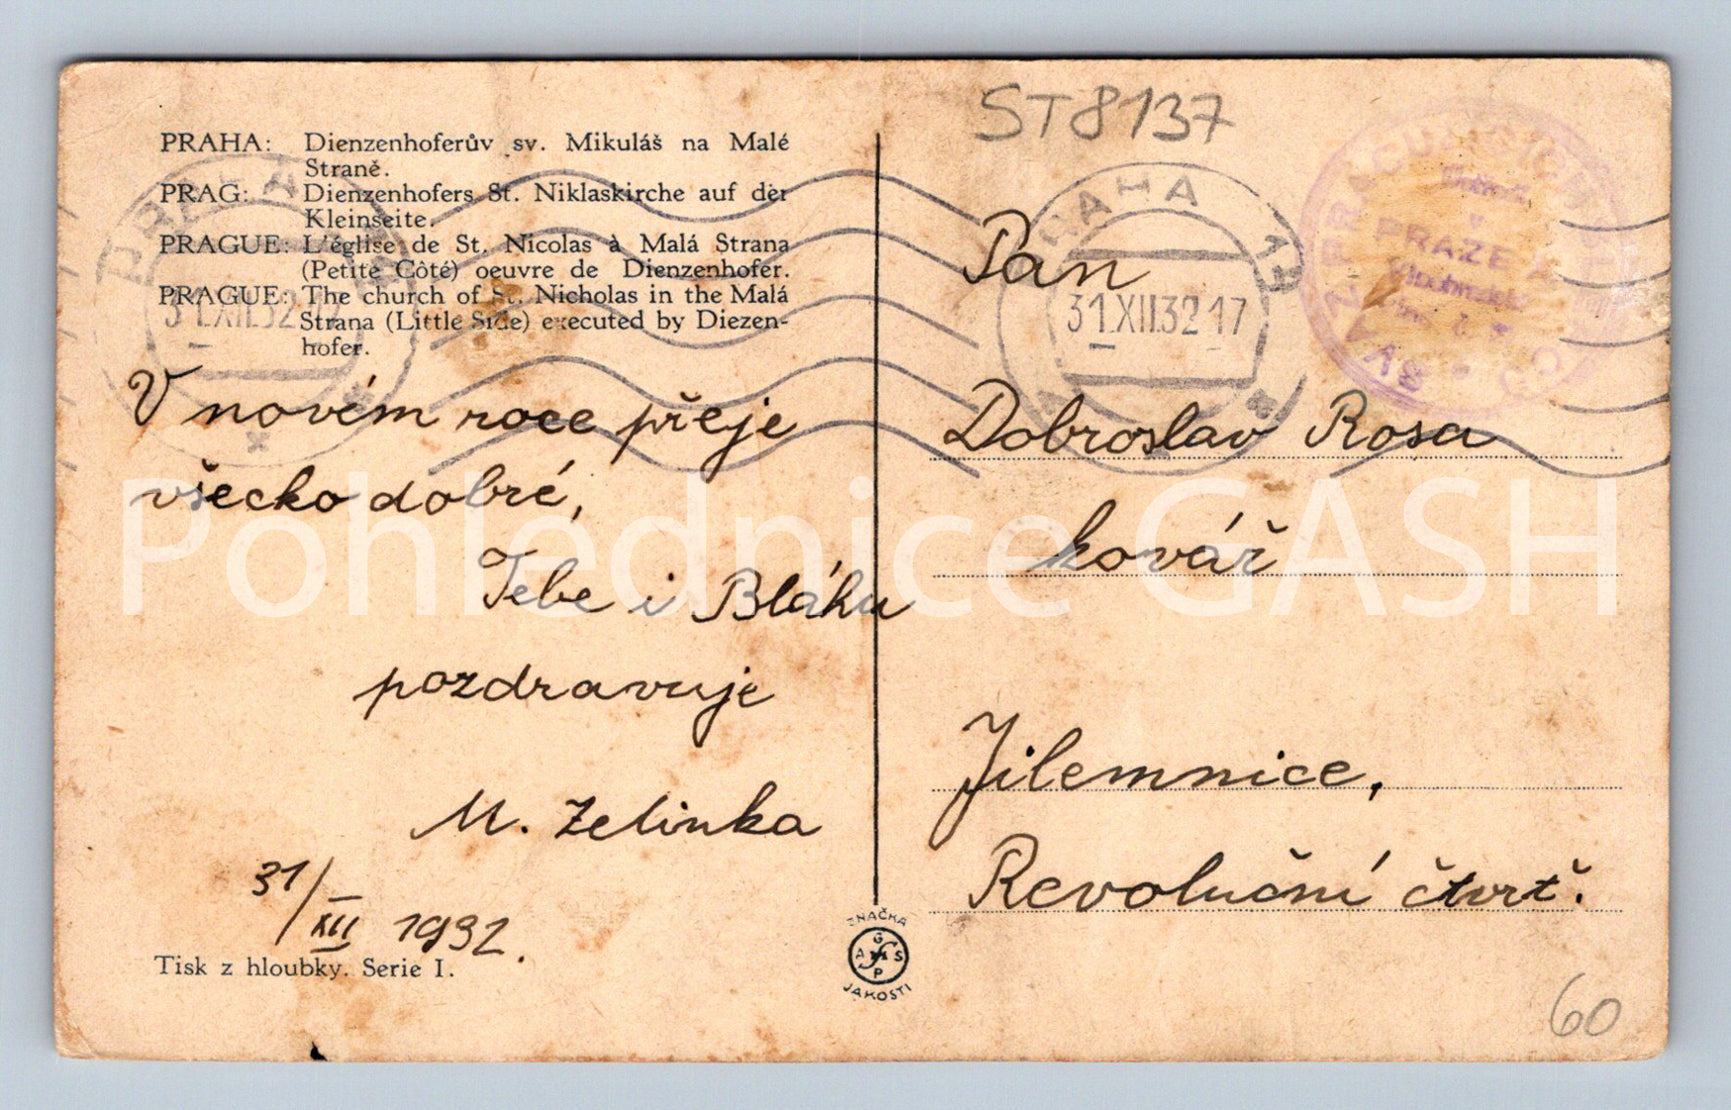 ST8137
PRAHA: Dienzenhoferův sv. Mikuláš na Malé
Straně.
PRAG: Dienzenhofers St. Niklaskirche auf der
Kleinseite.
PRAGUE: L'église de St. Nicolas à Malá Strana
(Petite Côté) oeuvre de Dienzenhofer.
PRAGUE: The church of St. Nicholas in the Malá
Strana (Little Side) executed by Diezen-
hofer.
V novém roce přeje
všecko dobré,
Tebe i Bláhu
pozdravuje
M. Zelinka
31/XII 1932.
Tisk z hloubky. Serie I.
ZNAČKA
G
A S
P
JAKOSTI
PRAHA
31.XII.32 17
PRAHA 19
31.XII.32 17
V PRAZE
SVAZ PRACUJÍCÍ
Pan
Dobroslav Rosa
kovář
Jilemnice,
Revoluční čtvrť.
60
Pohlednice GASH